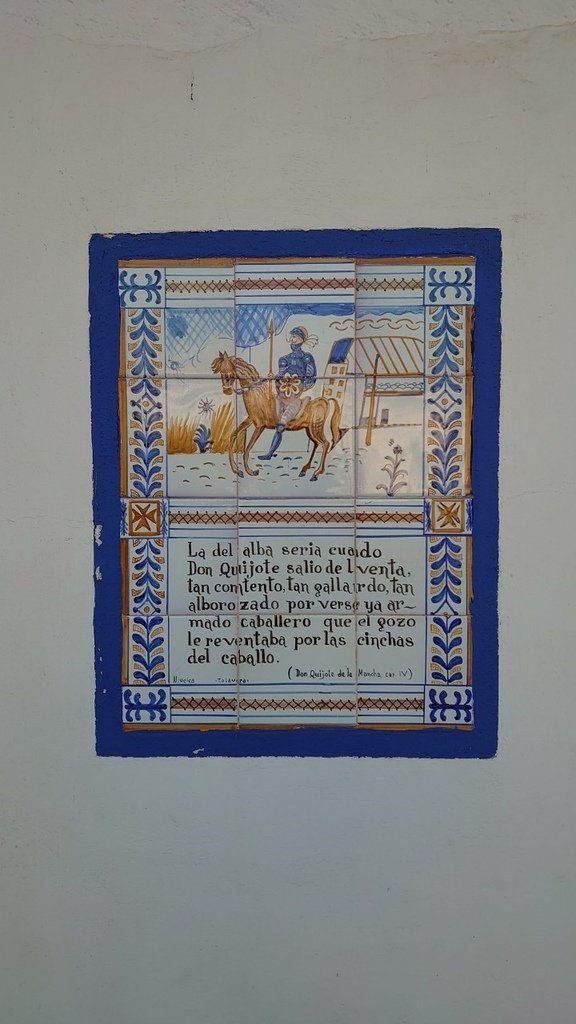 La del alba seria cuando
Don Quijote salio de l venta,
tan contento, tan gallardo, tan
alborozado por verse ya ar-
mado caballero que el gozo
le reventaba por las cinchas
del caballo.
(Don Quijote de la Mancha, cap. IV)
Niveiro -Talavera-